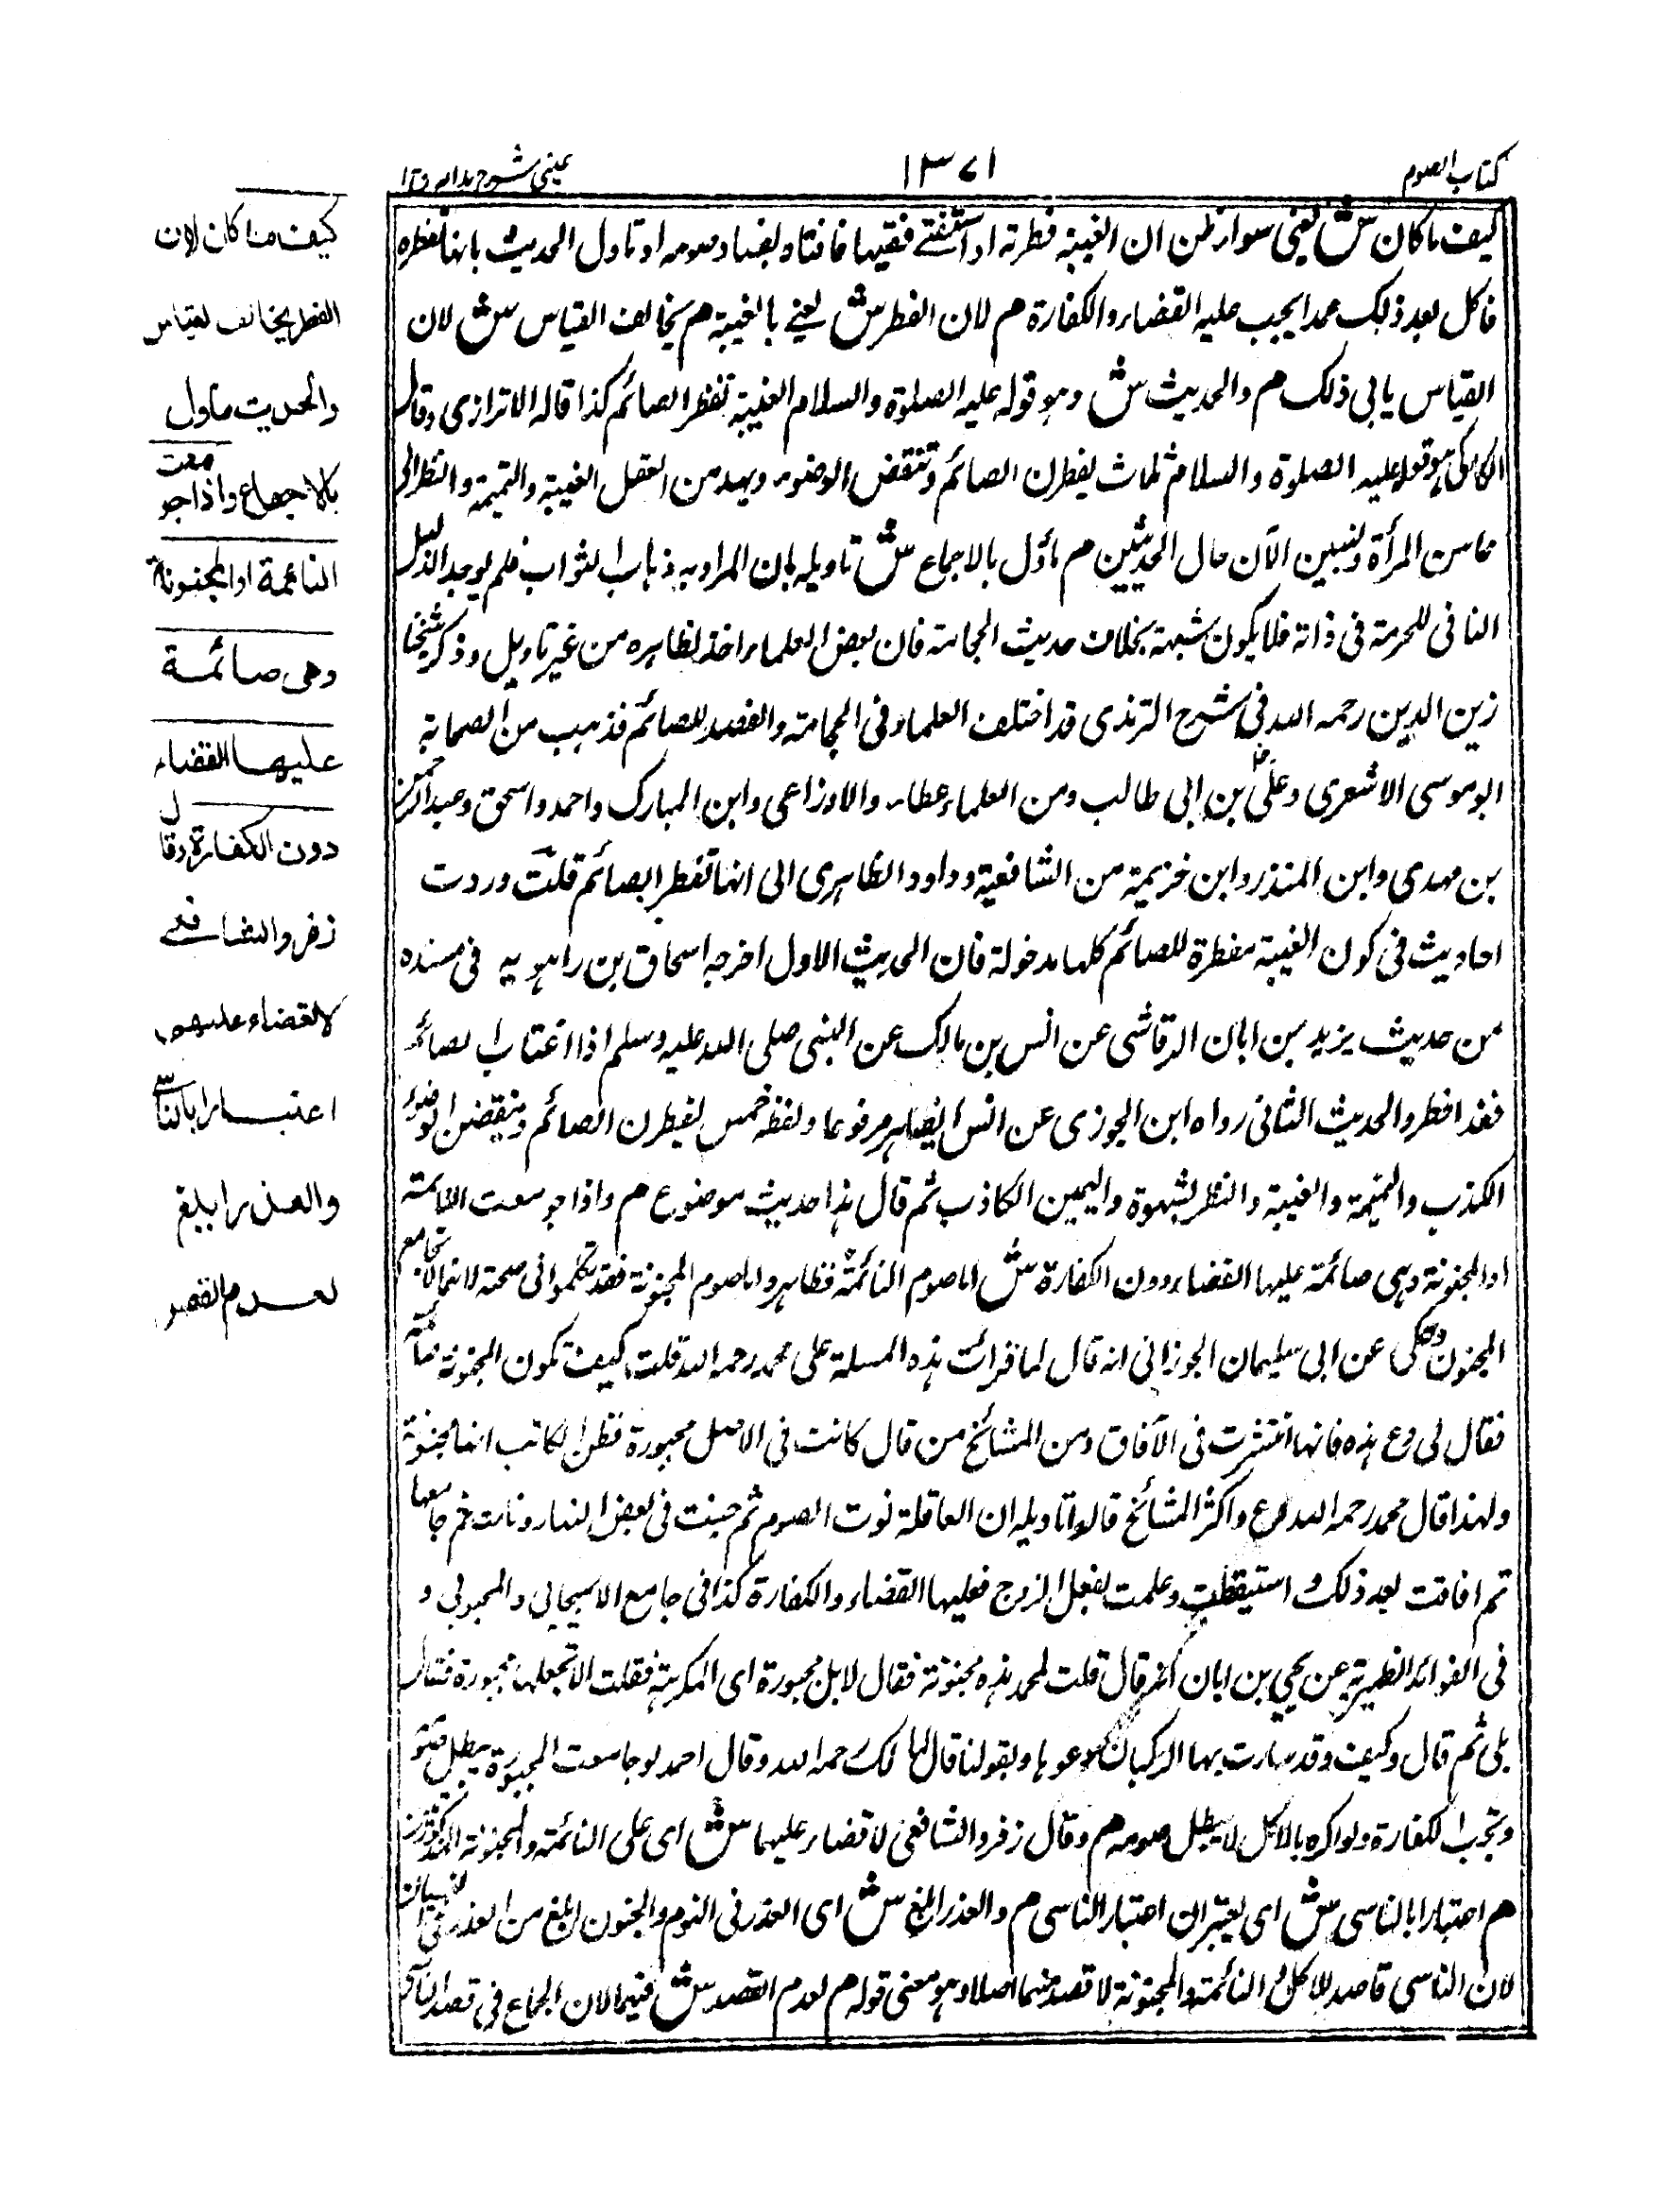 كتاب الصوم
١٣٧١
عينى شرح هدايه ج ١
كيف ما كان ش يعنى سواء ظن ان الغيبة فطرته او استفتى فقيها فافتاه بفساد صومه او تاول الحديث بانها تفطره
فاكل بعد ذلك عمدا يجب عليه القضاء والكفارة م لان الفطر ش يعنى بالغيبة م يخالف القياس ش لان
القياس يابى ذلك م والحديث ش وهو قوله عليه الصلوة والسلام الغيبة تفطر الصائم كذا قاله الاترازى وقال
الكاكى هو قوله عليه الصلوة والسلام ثلاث يفطرن الصائم وتنقض الوضوء ويهدمن العقل الغيبة والنميمة والنظر الى
محاسن المرأة ونبين الآن حال الحديثين م مأول بالاجماع ش تاويله بان المراد به ذهاب الثواب فلم يوجد الدليل
النافى للحرمة فى ذاته فلا يكون شبهة بخلاف حديث الحجامة فان بعض العلماء اخذ بظاهره من غير تاويل وذكر شيخنا
زين الدين رحمه الله فى شرح الترمذى قد اختلف العلماء فى الحجامة والفصد للصائم فذهب من الصحابة
ابو موسى الاشعرى وعلى بن ابى طالب ومن العلماء عطاء والاوزاعى وابن المبارك واحمد واسحق وعبد الرحمن
بن مهدى وابن المنذر وابن خزيمة من الشافعية وداود الظاهرى الى انها تفطر الصائم قلت وردت
احاديث فى كون الغيبة مفطرة للصائم كلها مدخولة فان الحديث الاول اخرجه اسحاق بن راهويه فى مسنده
من حديث يزيد بن ابان الرقاشى عن انس بن مالك عن النبى صلى الله عليه وسلم اذا اغتاب الصائم
فقد افطر والحديث الثانى رواه ابن الجوزى عن انس ايضا مرفوعا ولفظه خمس يفطرن الصائم وينقضن الوضوء
الكذب والنميمة والغيبة والنظر بشهوة واليمين الكاذب ثم قال هذا حديث موضوع م واذا جومعت النائمة
او المجنونة وهى صائمة عليها القضاء دون الكفارة ش اما صوم النائمة فظاهر واما صوم المجنونة فقد تكلموا فى صحته لانها لا تجامع
الجنون وحكى عن ابى سليمان الجوزانى انه قال لما قرأت هذه المسلة على محمد رحمه الله قلت كيف تكون المجنونة صائمة
فقال لى دع هذه فانها انتشرت فى الآفاق ومن المشائخ من قال كانت فى الاصل مجبورة فظن الكاتب انها مجنونة
ولهذا قال محمد رحمه الله دع واكثر المشائخ قالوا تاويله ان العاقلة نوت الصوم ثم جنت فى بعض النهار ونامت ثم جامعها
ثم افاقت بعد ذلك و استيقظت وعلمت بفعل الزوج فعليها القضاء والكفارة كذا فى جامع الاسبيجابى والمحبوبى و
فى الفوائد الظهيرية عن يحيى بن ابان انه قال قلت لمحمد هذه مجنونة فقال لا بل مجبورة اى المكرهة فقلت الا تجعلها مجبورة فقال
بلى ثم قال وكيف وقد سارت بها الركبان دعوها وبقولنا قال مالك رحمه الله وقال احمد لو جامعت المجبورة يبطل صومه
وتجب الكفارة ولو اكره بالاكل لا يبطل صومه م وقال زفر والشافعى لا قضاء عليهما ش اى على النائمة والمجنونة المذكورتين
م اعتبارا بالناسى ش اى يعتبران اعتبار الناسى م والعذر ابلغ ش اى العذر فى النوم والجنون ابلغ من العذر فى النسيان
لان الناسى قاصد للاكل و النائمة والمجنونة لا قصد منهما اصلا وهو معنى قوله م لعدم القصد ش فيهما لان الجماع فى قصد الناسى
كيف ما كان لان
الفطر يخالف القياس
والحديث مأول
بالاجماع واذا جومعت
النائمة او المجنونة
وهى صائمة
عليها القضاء
دون الكفارة وقال
زفر والشافعى
لا قضاء عليهما
اعتبارا بالناسى
والعذر ابلغ
لعدم القصد